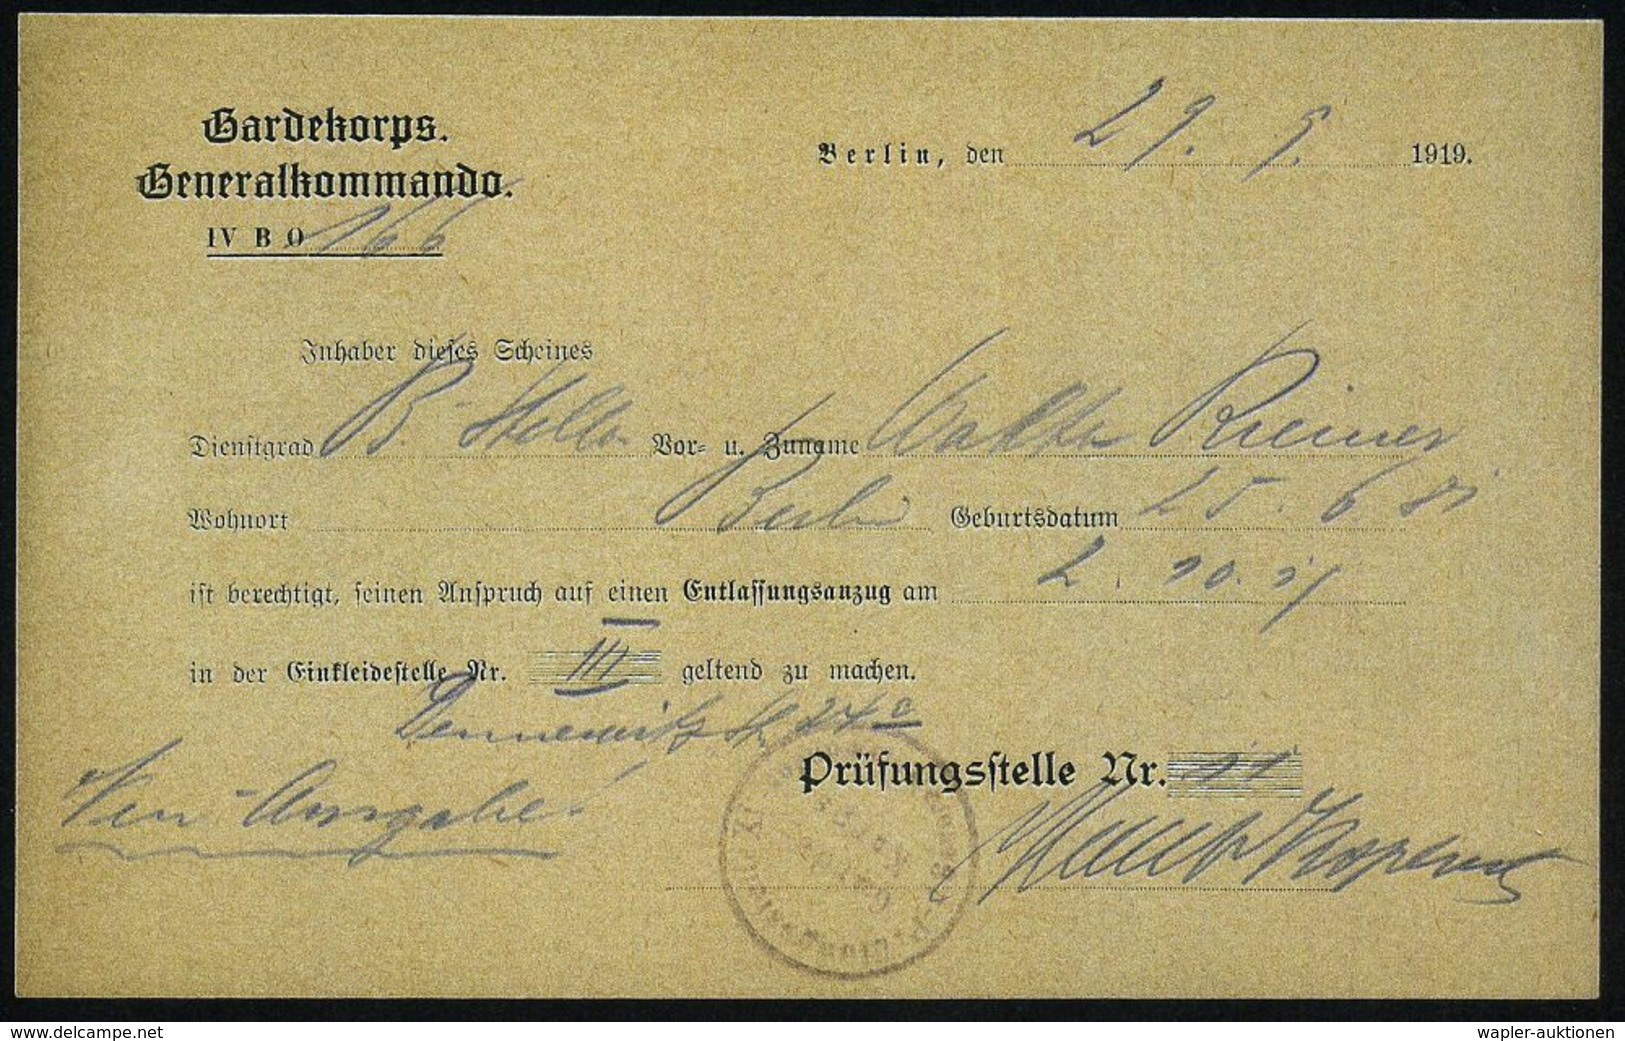 Gardekorps.
Generalkommando.
IV B O 166
Berlin, den 29. 9. 1919.
Inhaber dieses Scheines
Dienstgrad Vor- u. Zuname Walter Riemer
Wohnort Berlin Geburtsdatum 25. 6. 81
ist berechtigt, seinen Anspruch auf einen Entlassungsanzug am 2. 10. 19
in der Einkleidestelle Nr. III geltend zu machen.
Dennewitzstr 24a
Neu-Ausgabe!
Prüfungsstelle Nr. 11
www.delcampe.net
wapler-auktionen